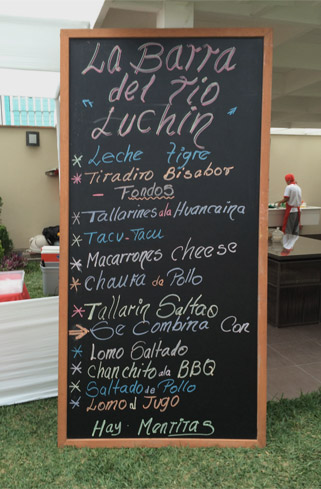 La Barra
del Tio
"Luchin"
* Leche Tigre
* Tiradiro Bisabor
- Fondos
* Tallarines ala Huancaina
* Tacu-Tacu
* Macarrones cheese
* Chaufa de Pollo
* Tallarin Saltao
→ Se Combina Con
* Lomo Saltado
* Chanchito ala BBQ
* Saltado de Pollo
* Lomo al Jugo
Hay Mentitas